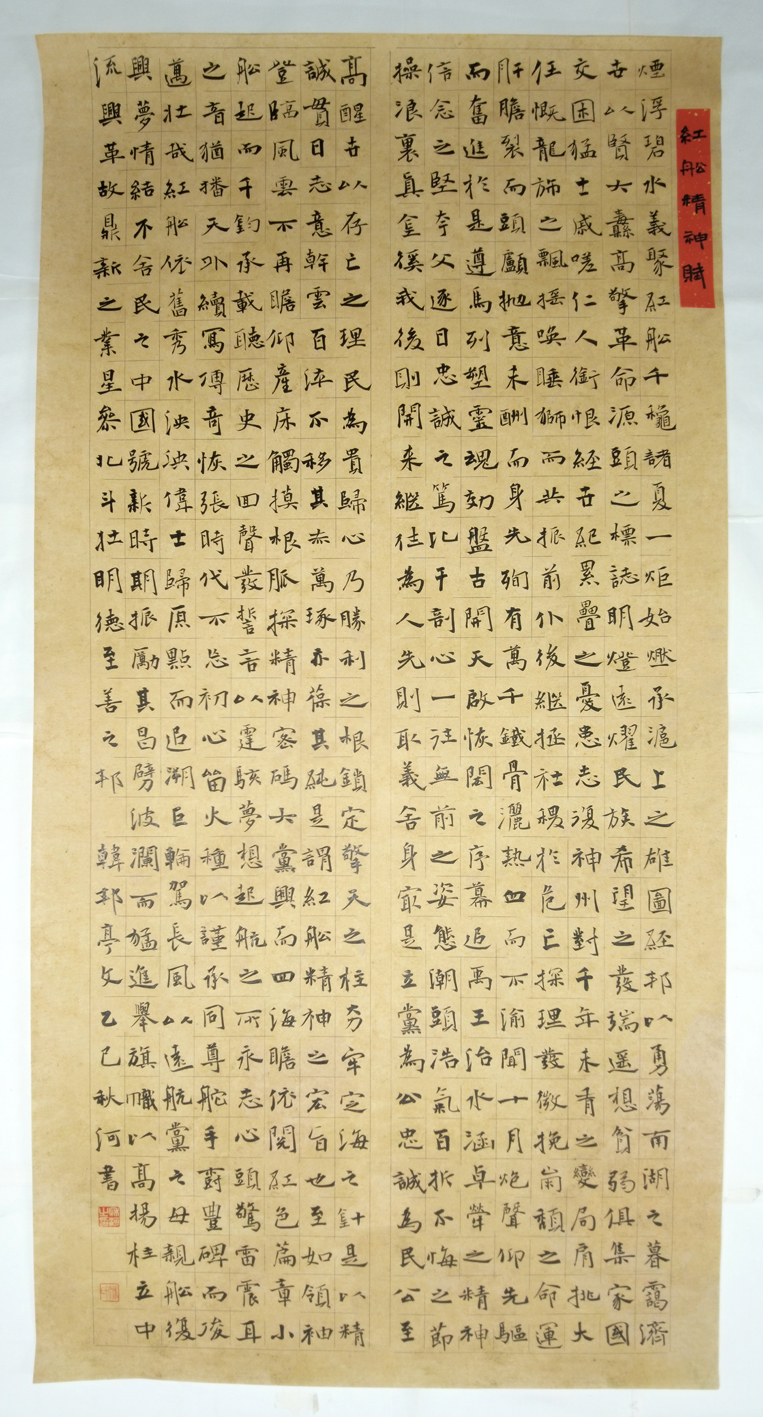 紅船精神賦
煙浮碧水義聚紅船千龝諸夏一炬始燃承滬上之雄圖經邦以勇蕩南湖之暮靄濟
世以賢大纛高擎革命源頭之標誌明燈遠耀民族希望之發端遥想貧弱俱集家國
交困猛士戚嗟仁人銜恨經世紀累疊之憂患志復神州對千年未有之變局肩挑大
任慨龍旆之飄摇唤睡獅而共振前仆後繼拯社稷於危亡探理發微挽崩頽之命運
肝膽裂而頭顱抛意未酬而身先殉有萬千鐵骨灑熱血而不渝聞十月炮聲仰先驅
而奮進於是遵馬列塑靈魂効盤古開天啟恢閎之序幕追禹王治水涵卓犖之精神
信念之堅夸父逐日忠誠之篤比干剖心一往無前之姿態潮頭浩氣百折不悔之節
操浪裏真金徯我後則開来繼往為人先則取義舍身寂是立黨為公忠誠為民公至
高醒世以存亡之理民為貴歸心乃勝利之根鎖定擎天之柱夯牢定海之針是以精
誠貫日志意幹雲百淬不移其赤萬琢亦葆其純是謂紅船精神之宏旨也至如領袖
登臨風雲不再瞻仰産床觸摸根脈探精神密碼大黨興而四海瞻依閱紅色篇章小
船起而千鈞承載聽歷史之回聲發誓言以霆駭夢想起航之所永志心頭驚雷震耳
之音猶播天外續寫傳奇恢張時代不忘初心笛火種以謹承同尊舵手對豐碑而浚
邁壯哉紅船依舊秀水泱泱偉士歸原點而追溯巨輪駕長風以遠航黨之母親船復
興夢情結不舍民之中國號新時期振勵其昌劈波瀾而猛進舉旗幟以高揚柱立中
流興革故鼎新之業星參北斗壮明德至善之邦 韓邦亭文乙巳秋河書